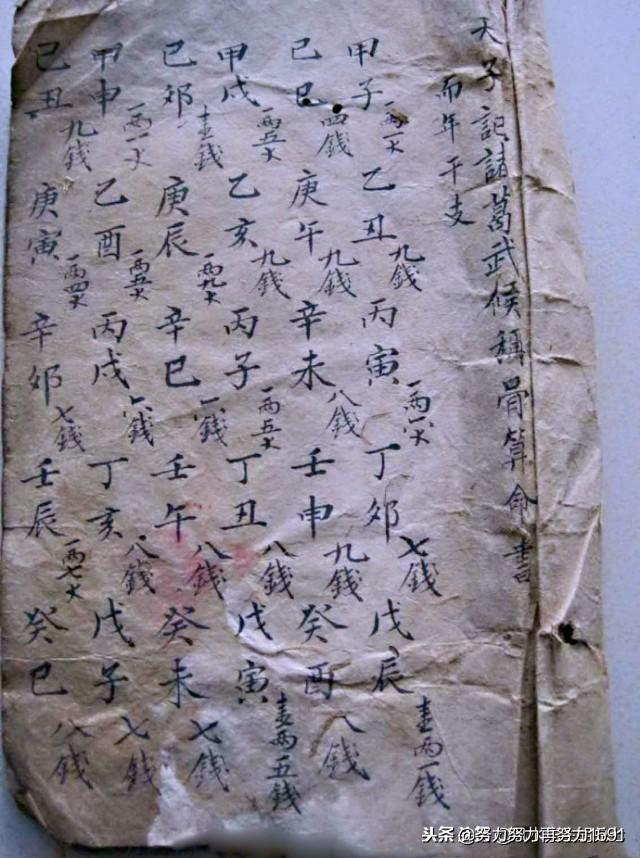 天子記諸葛武候稱骨算命書
而年干支
甲子 一兩一大 乙丑 九錢 丙寅 一兩八大 丁卯 七錢 戊辰 壹兩一錢
己巳 四錢 庚午 九錢 辛未 八錢 壬申 九錢 癸酉 八錢
甲戌 一兩五大 乙亥 九錢 丙子 一兩五大 丁丑 八錢 戊寅 壹兩五錢
己卯 壹錢 庚辰 一兩九大 辛巳 錢 壬午 八錢 癸未 七錢
甲申 一兩一大 乙酉 一兩五大 丙戌 錢 丁亥 八錢 戊子 七錢
己丑 九錢 庚寅 一兩四大 辛卯 七錢 壬辰 一兩七大 癸巳 八錢
头条 @努力努力再努力